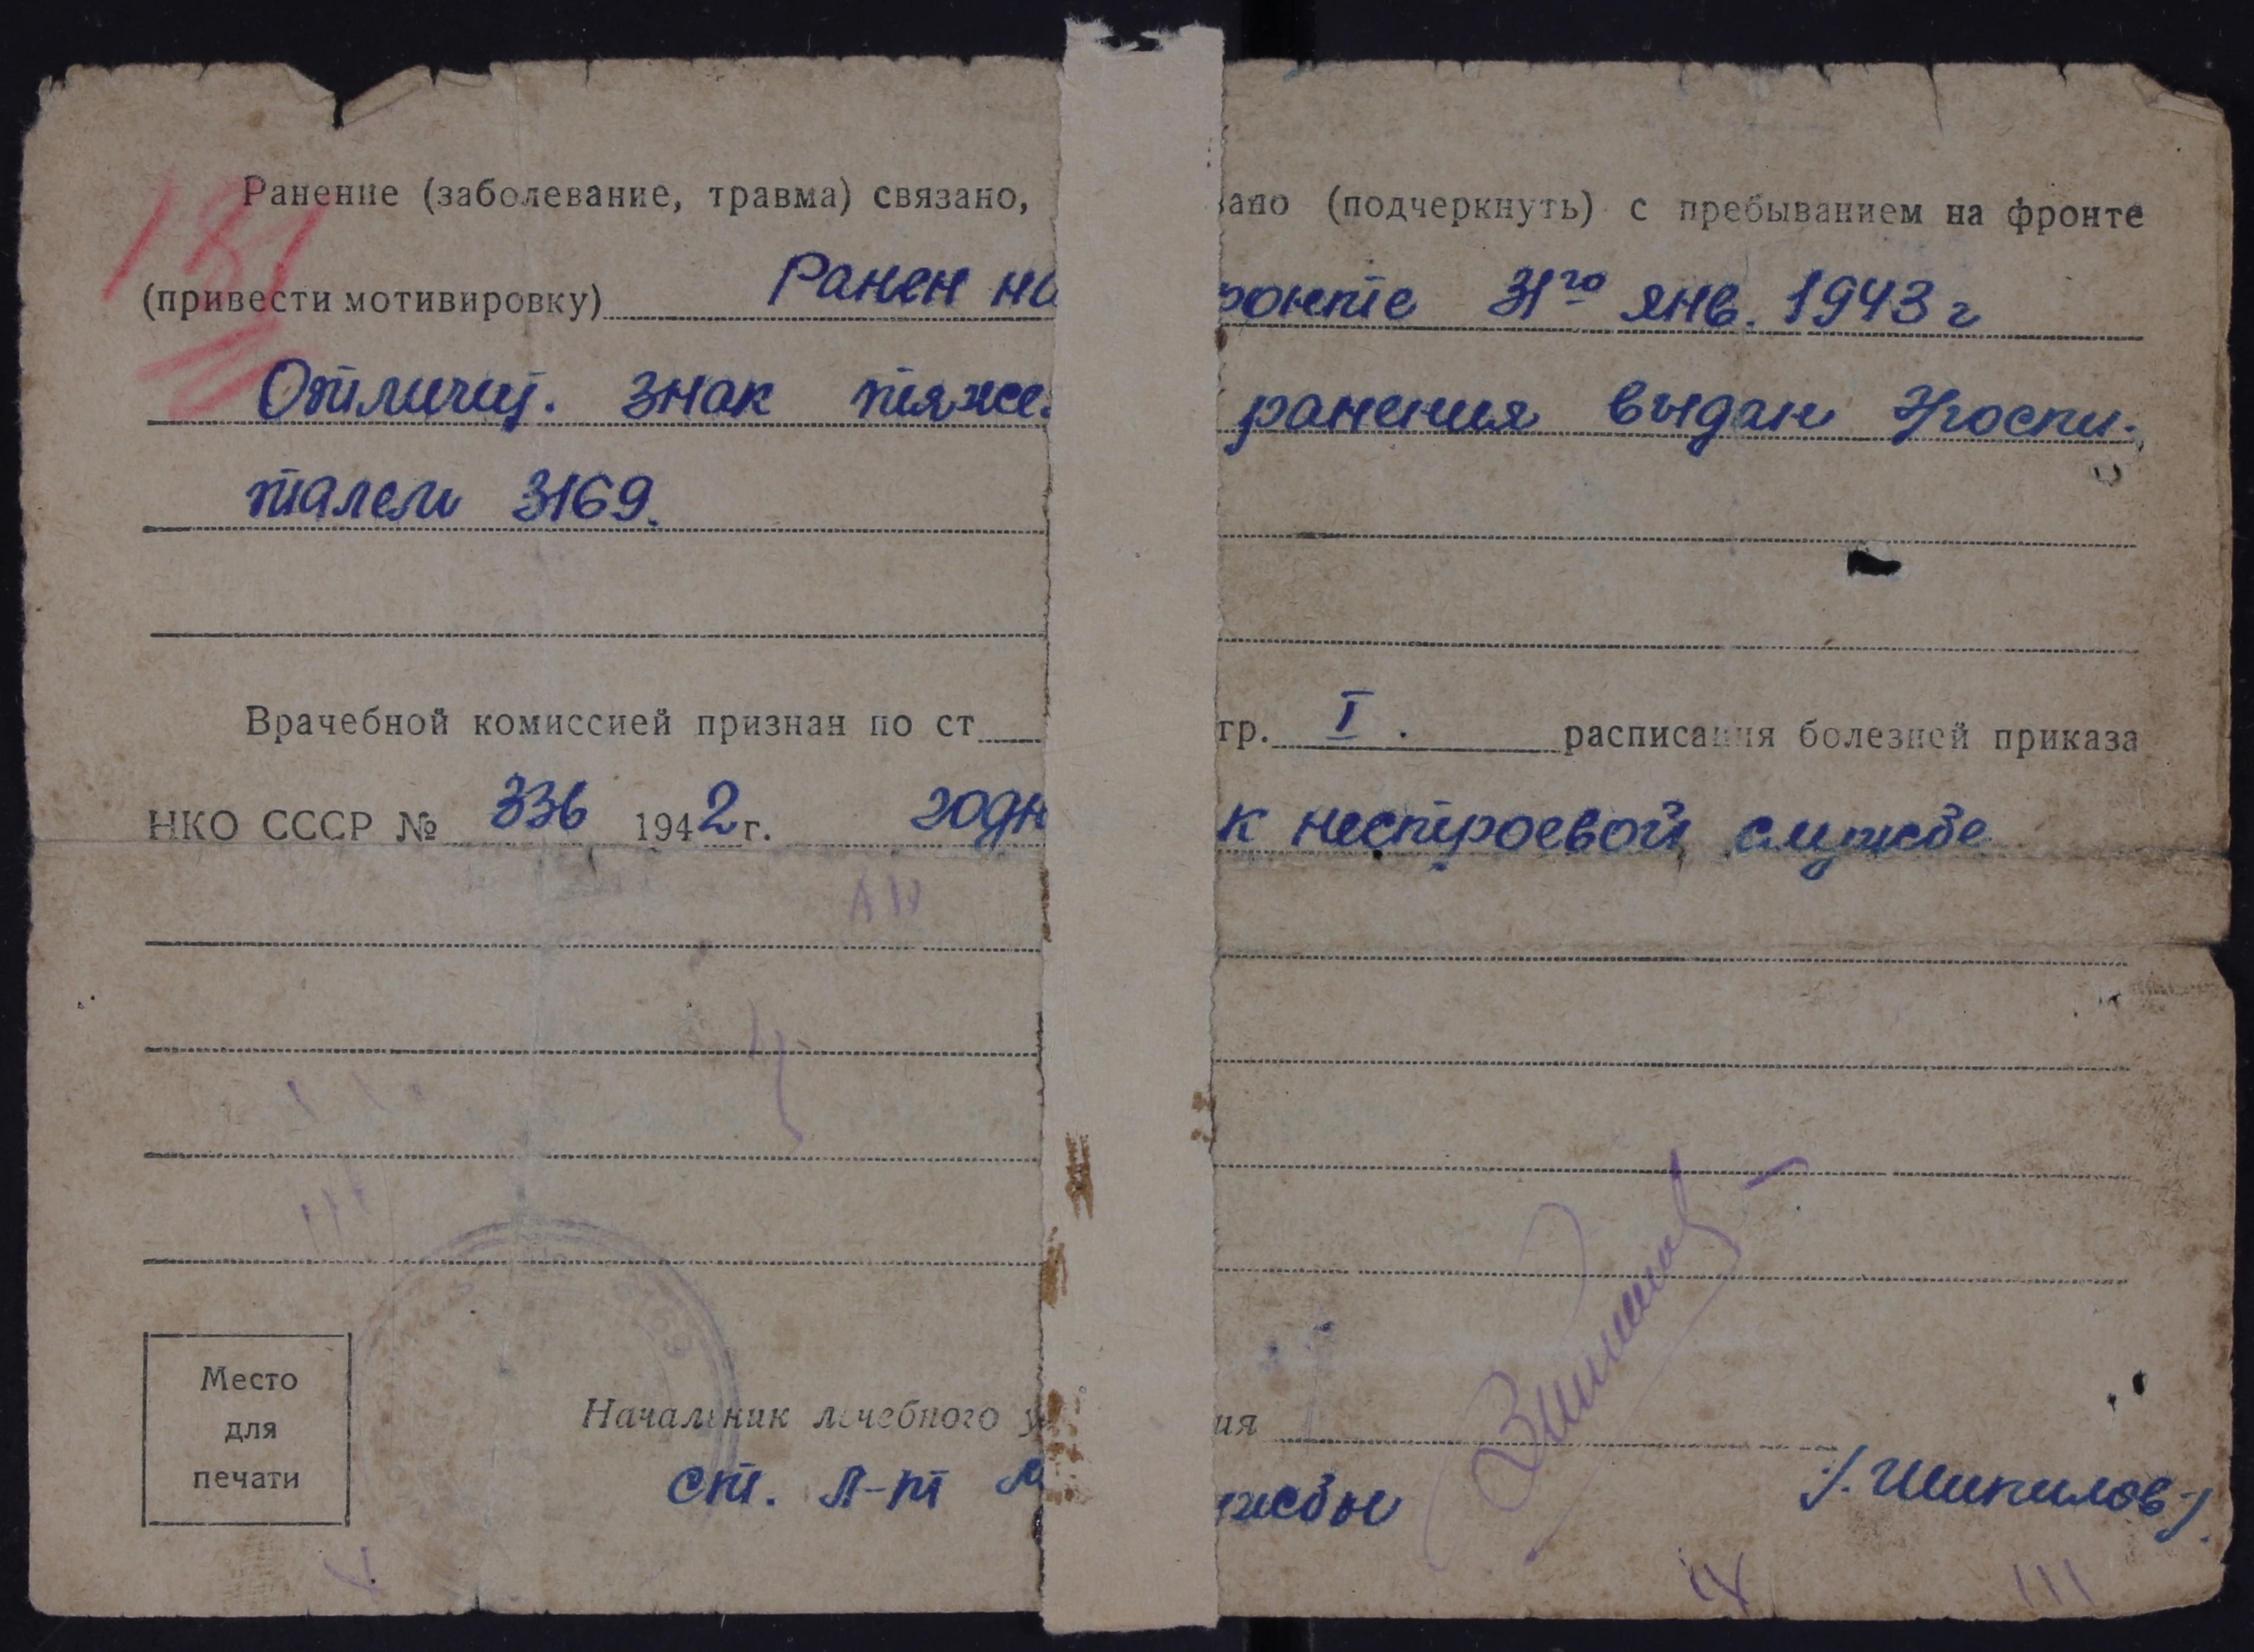 Ранение (заболевание, травма) связано, зано (подчеркнуть) с пребыванием на фронте
(привести мотивировку) Ранен на ронте 31го янв. 1943 г
Отличит. знак тяже. ранения выдан Эгоспи-
талем 3169.
Врачебной комиссией признан по ст гр. I. расписания болезней приказа
НКО СССР № 336 1942 г. годн к нестроевой службе
Место
для
печати
Начальник лечебного у ия
ст. л-т жбы /. Шипилов /.